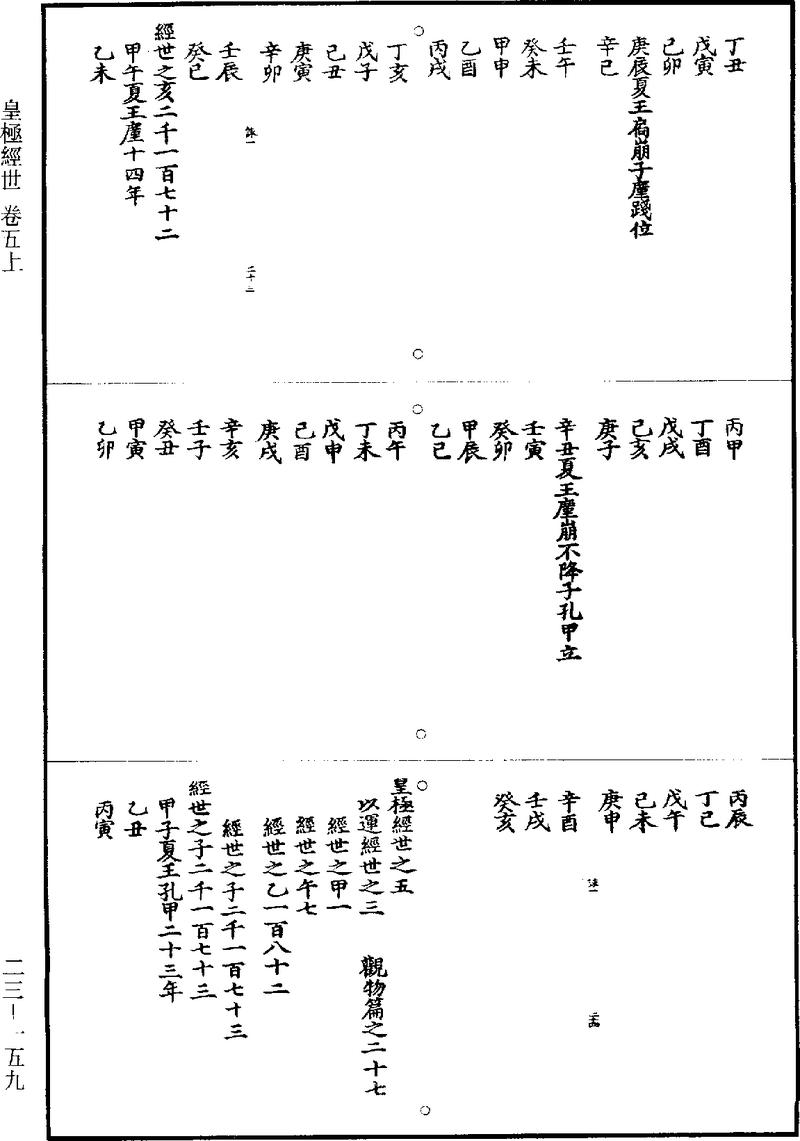 丁丑
戊寅
己卯
庚辰夏王扃崩子廑踐位
辛巳
壬午
癸未
甲申
乙酉
丙戌
丁亥
戊子
己丑
庚寅
辛卯
壬辰
癸巳
經世之亥二千一百七十二
甲午夏王廑十四年
乙未
丙申
丁酉
戊戌
己亥
庚子
辛丑夏王廑崩不降子孔甲立
壬寅
癸卯
甲辰
乙巳
丙午
丁未
戊申
己酉
庚戌
辛亥
壬子
癸丑
甲寅
乙卯
丙辰
丁巳
戊午
己未
庚申
辛酉
壬戌
癸亥
皇極經世之五
以運經世之三　觀物篇之二十七
經世之甲一
經世之午七
經世之乙一百八十二
經世之子二千一百七十三
經世之子二千一百七十三
甲子夏王孔甲二十三年
乙丑
丙寅
皇極經世 卷五上
二三－一五九